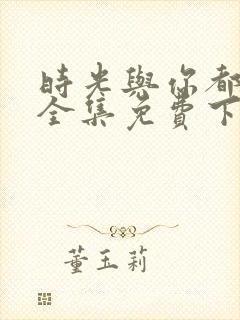 時光與你都
全集免費下
董玉莉